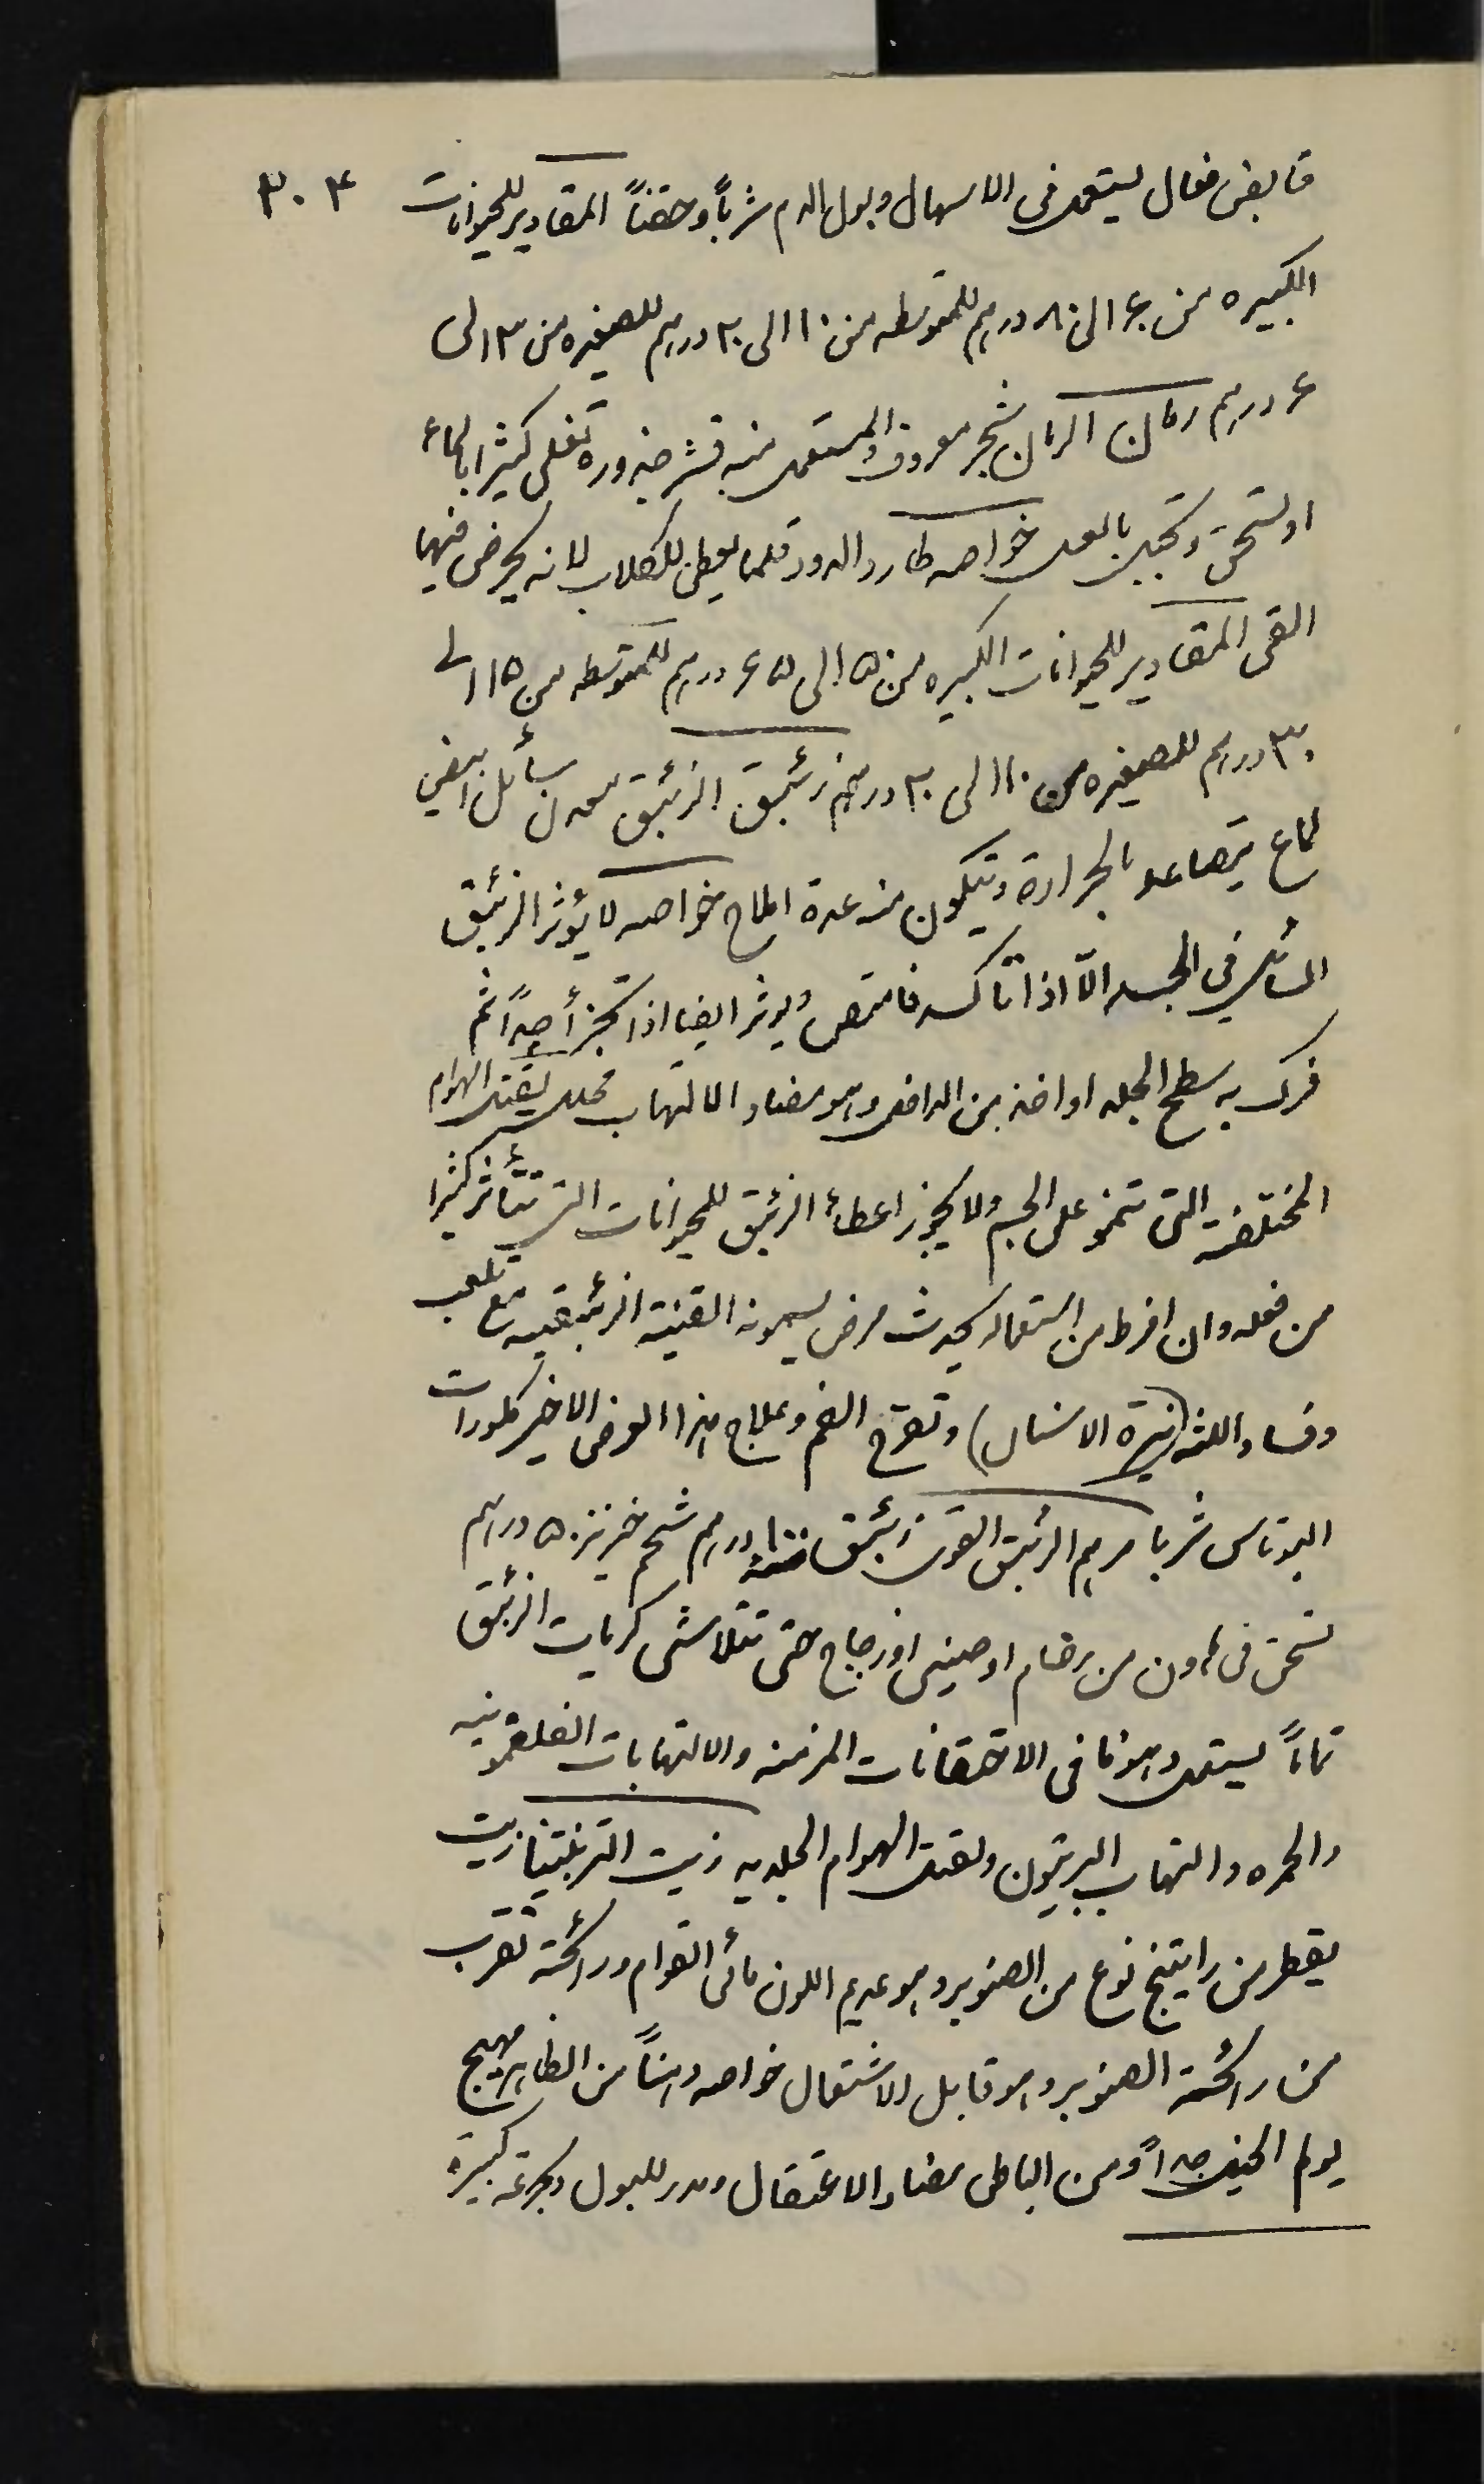 ٣٠٤
قابض فعال يستعمل فى الاسهال وبول الدم شرباً وحقناً المقادير للحيوانات
الكبيره من ٤٠ الى ٨٠ درهم للمتوسطه من ١٠ الى ٢٠ درهم للصغيره من ٣ الى
٤ درهم رمان الرمان شجر معروف والمستعمل منه قشر جذوره تغلى كثيرا بالماء
او تسحق وتجبل بالعسل خواصه طارد الدود قلما يعطى للكلاب لانه يحرض فيها
القى المقادير للحيوانات الكبيره من ٥٠ الى ٤٥ درهم للمتوسطه من ١٥ الى
٣٠ درهم للصغيره من ١٠ الى ٢٠ درهم زئبق الزئبق معدن سائل ابيض
لماع يتصاعد بالحرارة ويتكون منه عدة املاح خواصه لا يؤثر الزئبق
السائل في الجسد الّا اذا تأكسد فامتص ويوثر ايضا اذا تجزأ جداً ثم
فرك به سطح الجلد او اخذ من الداخل وهو مضاد الالتهاب محلل يقتل الهوام
المختلفة التى تنمو على الجسم ولا يجوز اعطاء الزئبق للحيوانات التى تتأثر كثيرا
من فعله وان افرط من استعماله يحدث مرض يسمونه القنية الزئبقيه مع تلعب
وفساد اللثه (نيرة الاسنان) وتقرح الفم وعلاج هذا العرض الاخير كلورات
البوتاس شربا مرهم الزئبق القوى زئبق ١٠٠ درهم شحم خنزير ٥٠ درهم
تسحق فى هاون من رخام او صينى او زجاج حتى تتلاشى كريات الزئبق
تماماً يستعمل دهونا فى الاحتقانات المزمنه والالتهابات الفلغمونيه
والحمره والتهاب البريتون ولقتل الهوام الجلديه زيت التربنتينا زيت
يقطر من راتينج نوع من الصنوبر وهو عديم اللون مائى القوام ورائحته تقرب
من رائحة الصنوبر وهو قابل الاشتعال خواصه دهناً من الظاهر مهيج
يولم الخيل جداً ومن الباطن مضاد الاعتقال ومدر للبول وبجرعة كبيرة